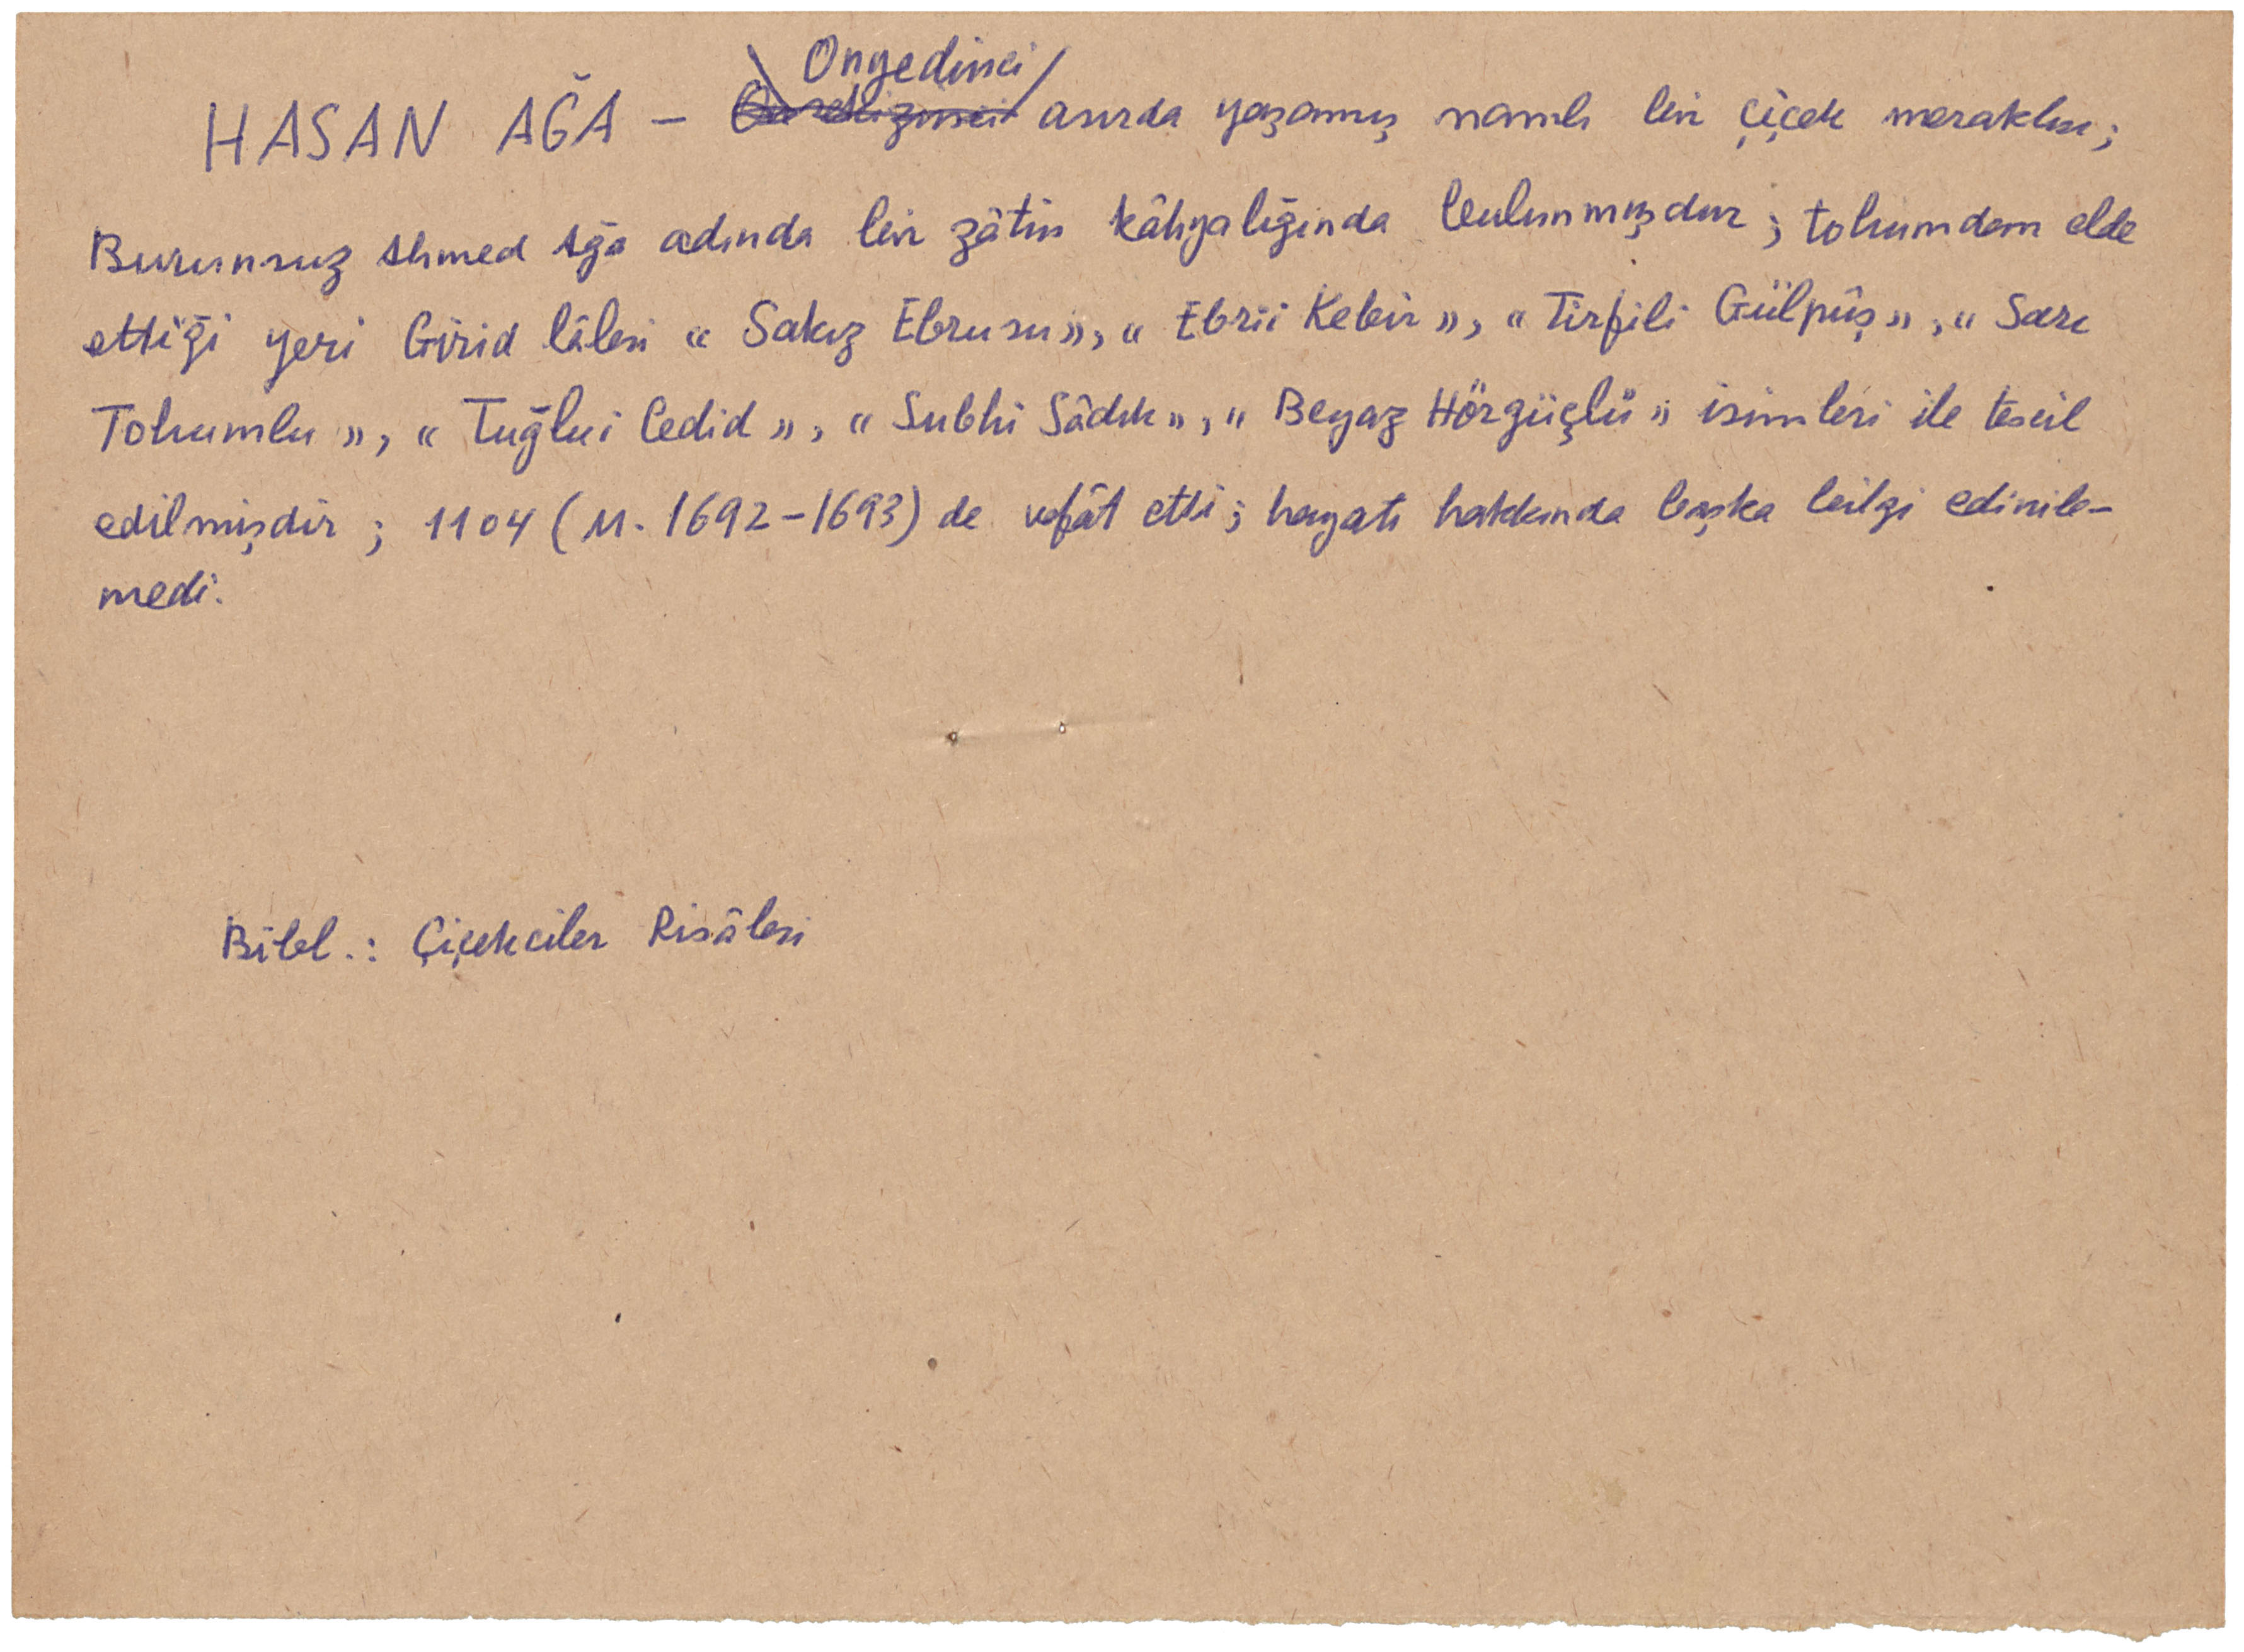 HASAN AĞA - Onyedinci asırda yaşamış namlı bir çiçek meraklısı;
Burunsuz Ahmed Ağa adında bir zâtın kâhyalığında bulunmuşdur; tohumdan elde
ettiği yeri Girid lâlesi « Sakız Ebrusu», « Ebrii Kebir », « Tirfili Gülpûş », « Sarı
Tohumlu », « Tuğlui Cedid », « Subhi Sâdık », « Beyaz Hörgüçlü » isimleri ile tescil
edilmişdir ; 1104 (M. 1692-1693) de vefât etti ; hayatı hakkında başka bilgi edinile-
medi.
Bibl. : Çiçekciler Risâlesi